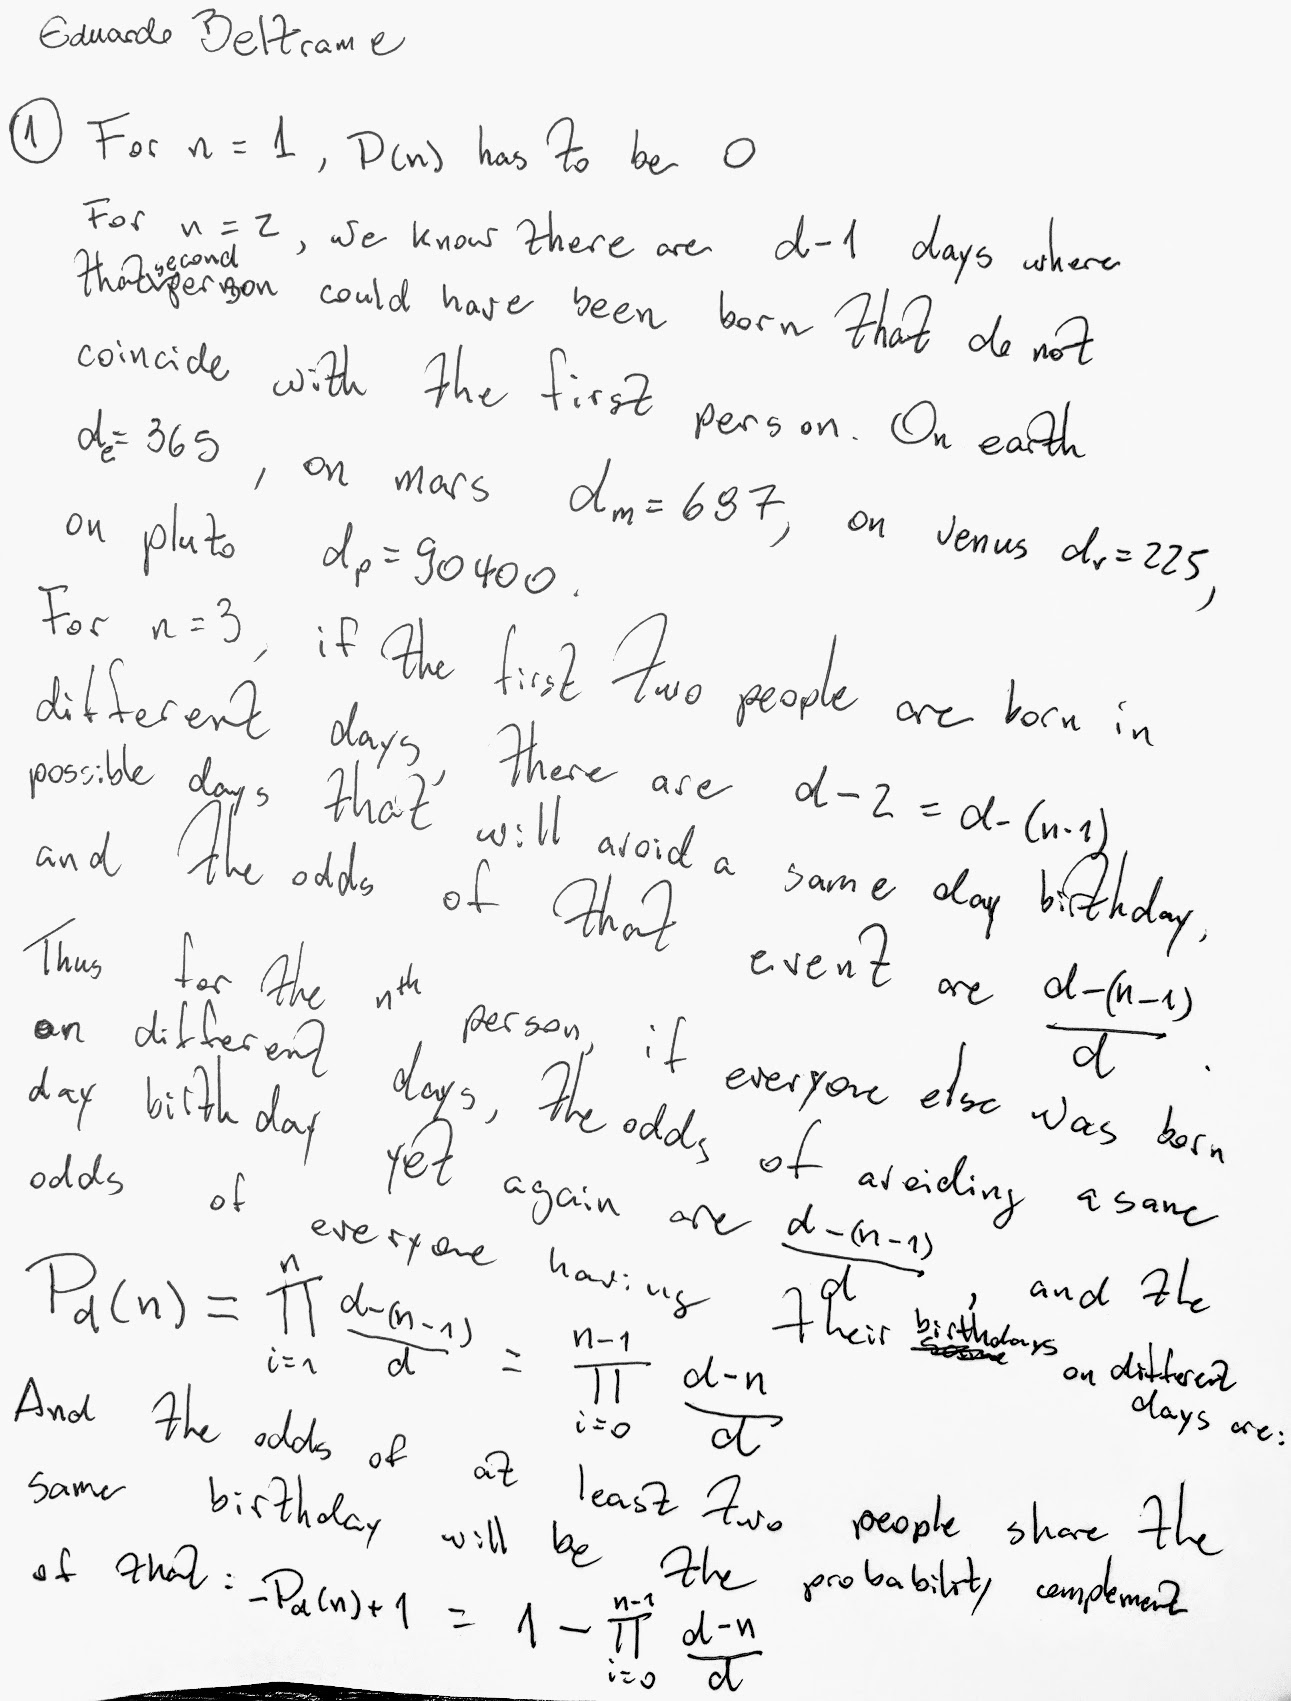 Eduardo Beltrame
① For n = 1, P(n) has to be 0
For n = 2, we know there are d-1 days where
that second person could have been born that do not
coincide with the first person. On earth
de = 365, on mars dm = 687, on venus dv = 225,
on pluto dp = 90400.
For n = 3, if the first two people are born in
different days, there are d-2 = d-(n-1)
possible days that will avoid a same day birthday,
and the odds of that event are d-(n-1)/d.
Thus for the nth person, if everyone else was born
on different days, the odds of avoiding a same
day birthday yet again are d-(n-1)/d, and the
odds of everyone having their birthdays on different days are:
Pd(n) = ∏_{i=1}^{n} d-(n-1)/d = ∏_{i=0}^{n-1} d-n/d
And the odds of at least two people share the
same birthday will be the probability complement
of that: -Pd(n)+1 = 1 - ∏_{i=0}^{n-1} d-n/d